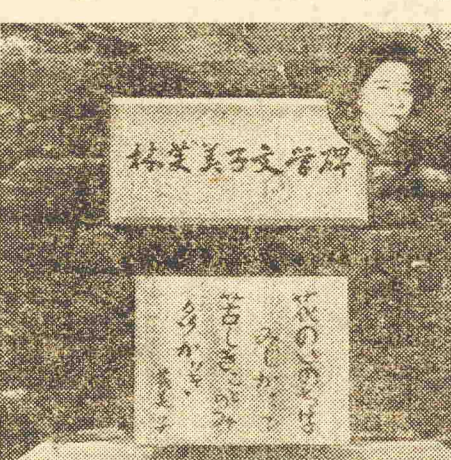 林芙美子文学碑
花のいのちは
みじかくて
苦しきことのみ
多かりき
芙美子